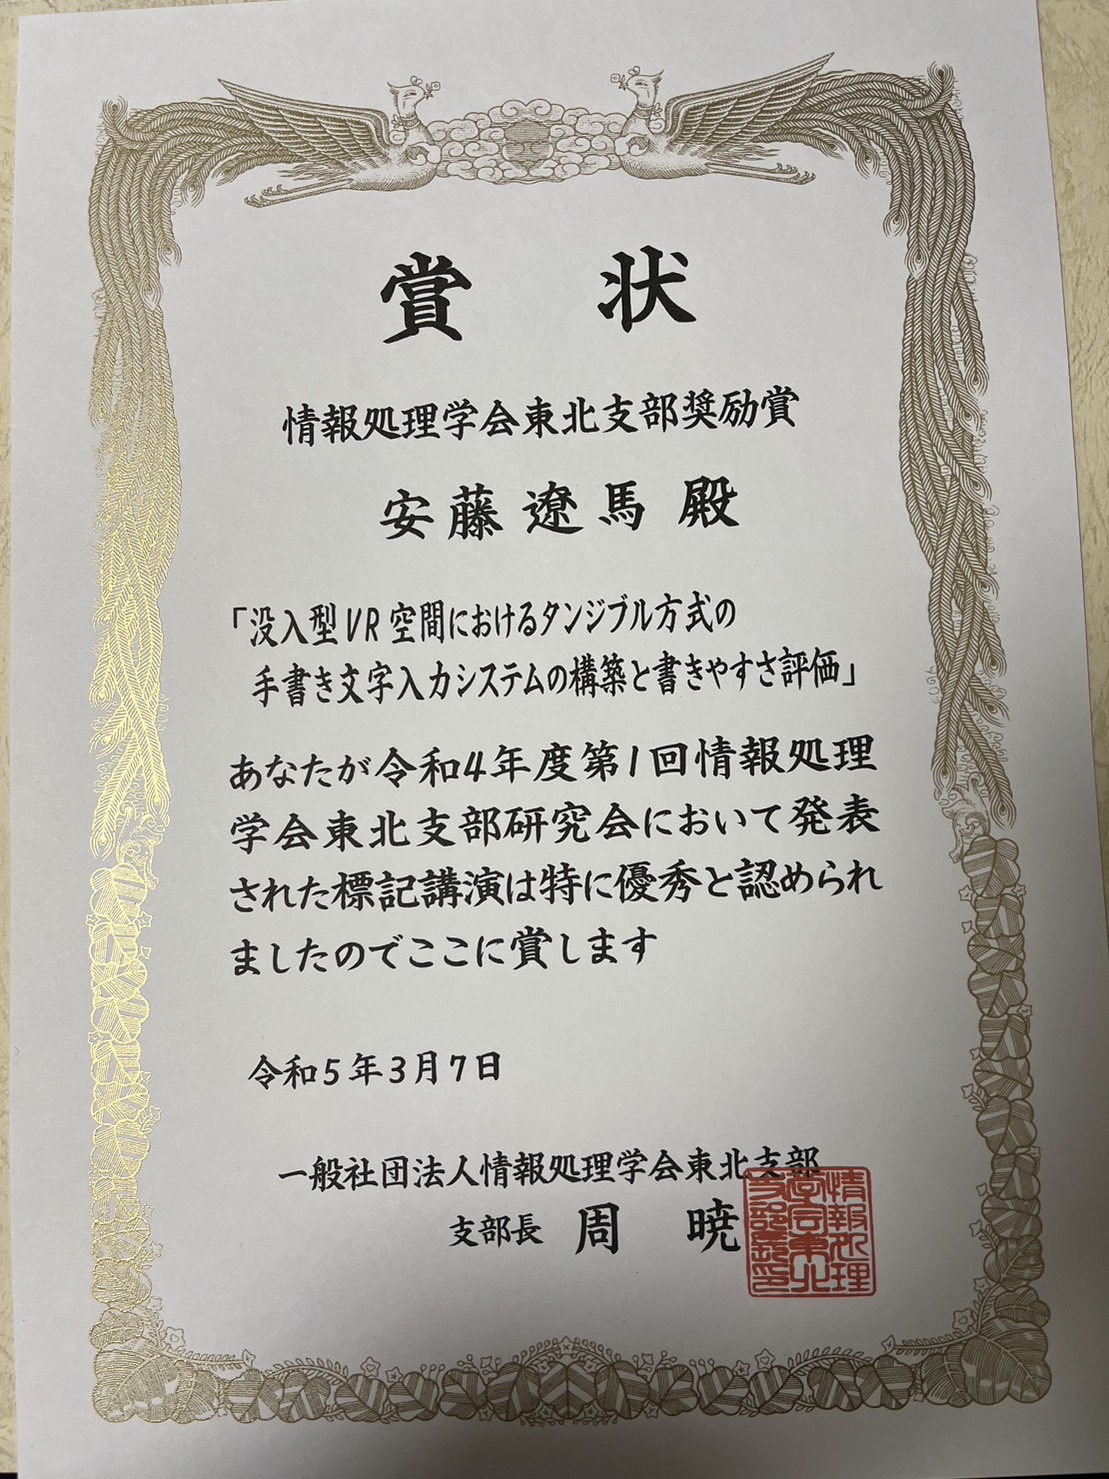 賞状
情報処理学会東北支部奨励賞
安藤遼馬 殿
「没入型VR空間におけるタンジブル方式の
手書き文字入力システムの構築と書きやすさ評価」
あなたが令和4年度第1回情報処理
学会東北支部研究会において発表
された標記講演は特に優秀と認められ
ましたのでここに賞します
令和5年3月7日
一般社団法人情報処理学会東北支部
支部長 周 暁
情報処理
学会東北
支部長印